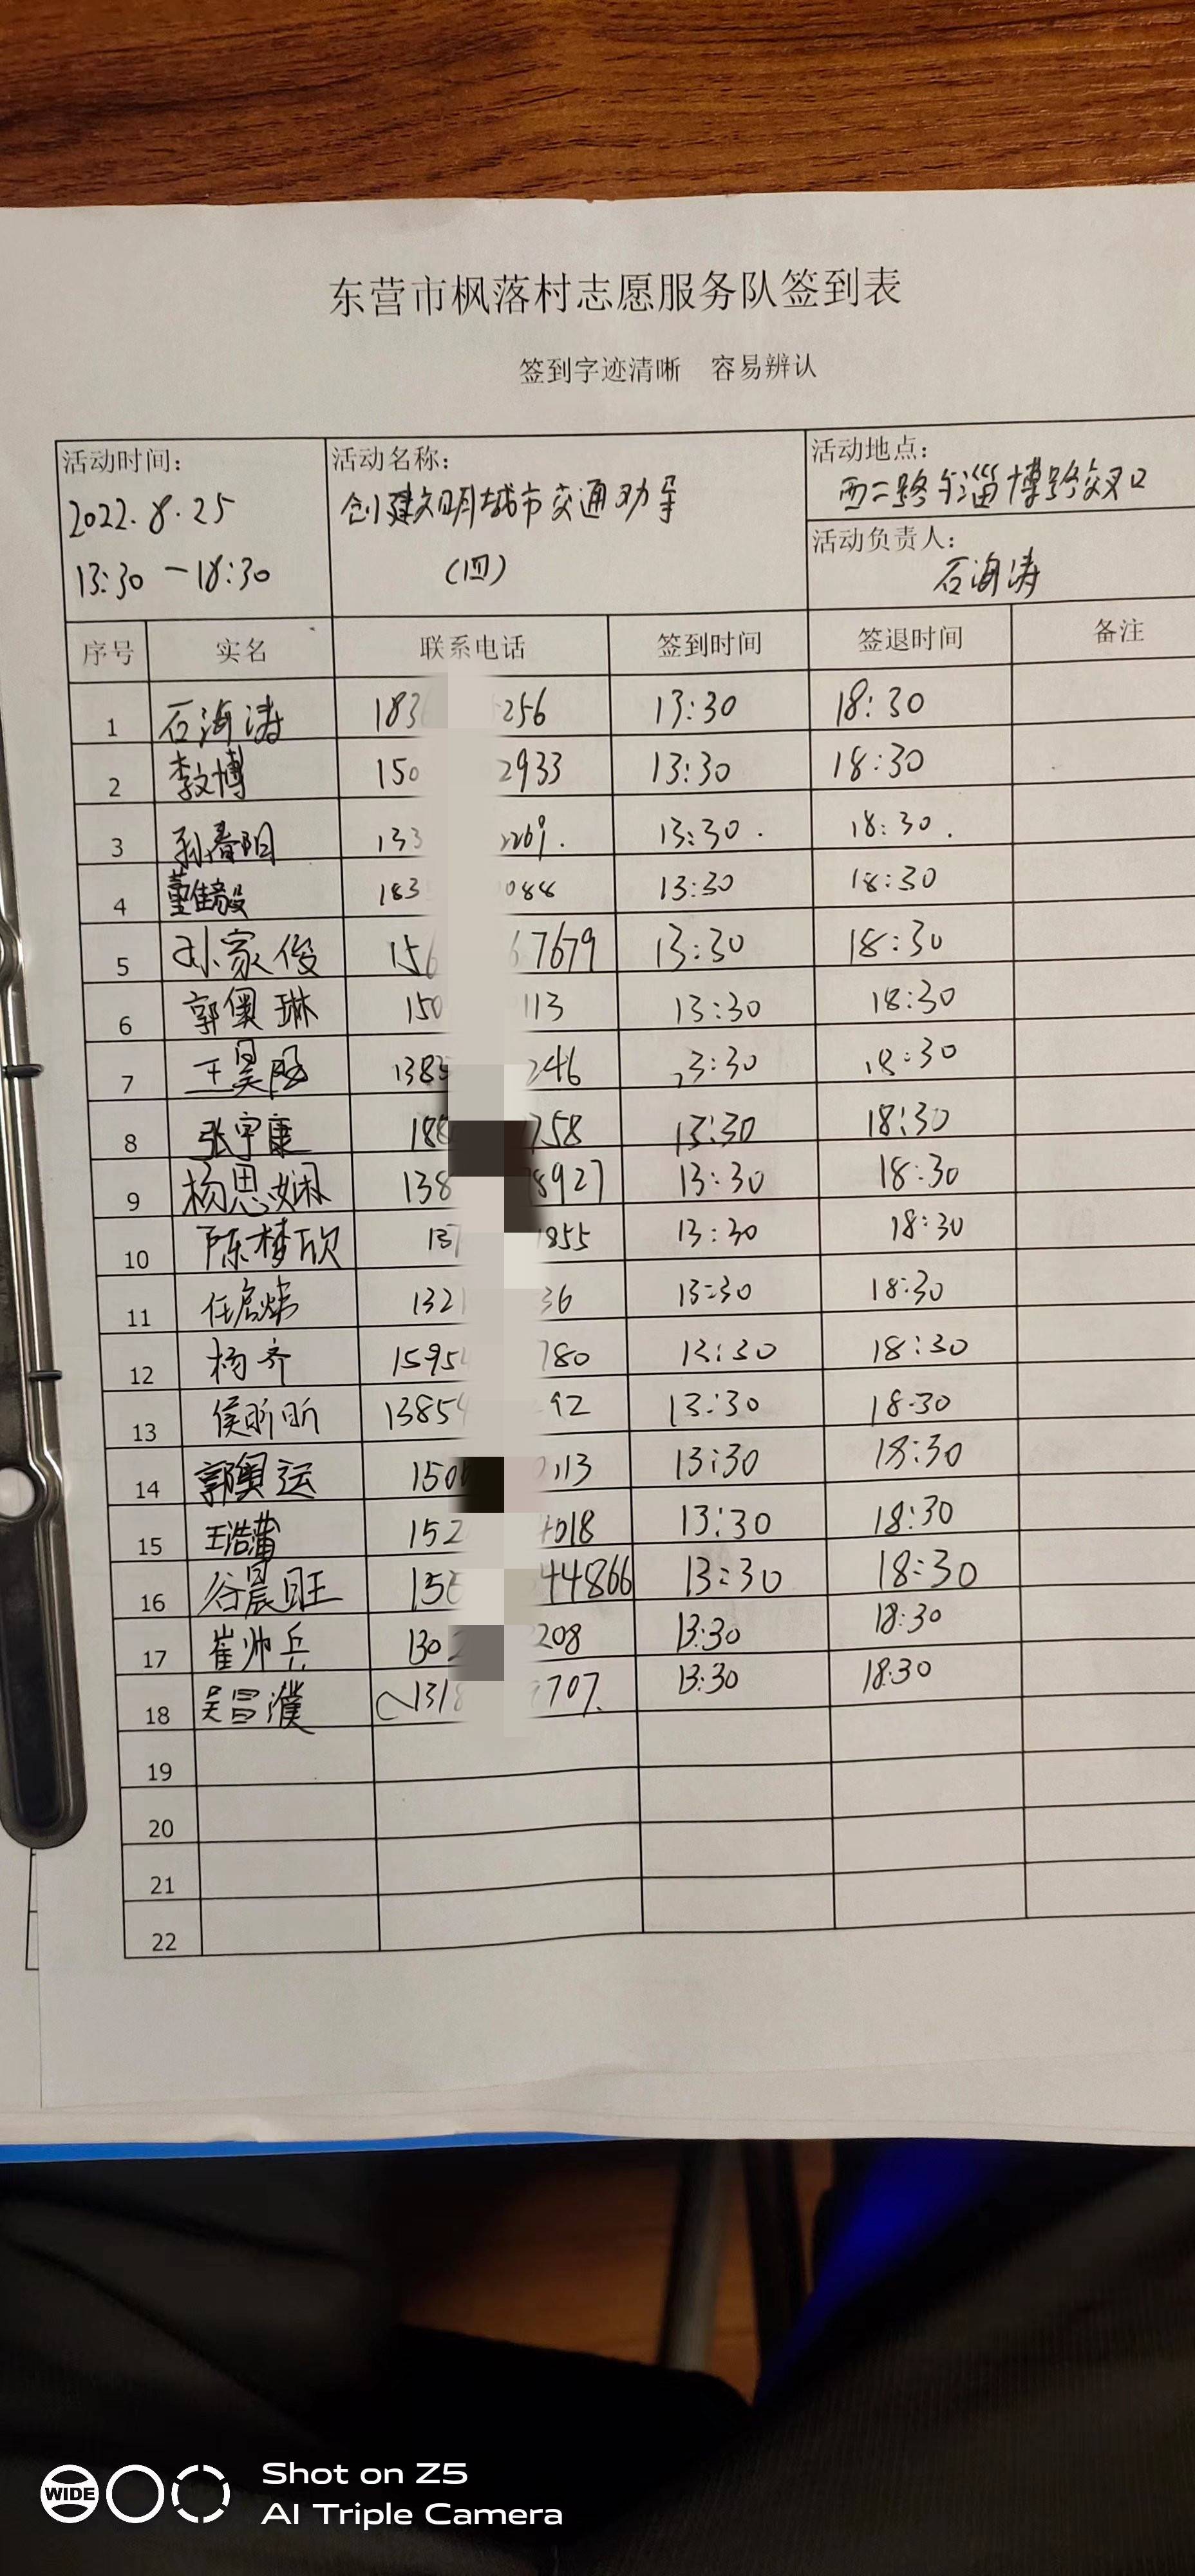 东营市枫落村志愿服务队签到表
签到字迹清晰 容易辨认
活动时间：
2022.8.25
13:30 — 18:30
活动名称：
创建文明城市交通劝导
（四）
活动地点：
西二路与淄博路交叉口
活动负责人：
石海涛
序号 实名 联系电话 签到时间 签退时间 备注
1 石海涛 183 256 13:30 18:30
2 李文博 150 2933 13:30 18:30
3 孙春阳 133 2269. 13:30. 18:30.
4 董佳毅 183 088 13:30 18:30
5 孙家俊 156 67679 13:30 18:30
6 郭奥琳 150 113 13:30 18:30
7 王昊 1385 246 13:30 18:30
8 张宇康 188 258 13:30 18:30
9 杨思娴 138 8927 13:30 18:30
10 陈梦欣 137 1855 13:30 18:30
11 任启炜 1321 36 13:30 18:30
12 杨齐 1595 780 13:30 18:30
13 侯昕昕 13854 92 13:30 18:30
14 郭奥运 150 0113 13:30 18:30
15 王浩 152 4018 13:30 18:30
16 谷晨旺 156 44866 13:30 18:30
17 崔帅兵 130 208 13:30 18:30
18 吴昌濮 1318 707. 13:30 18:30
19
20
21
22
WIDE
Shot on Z5
AI Triple Camera